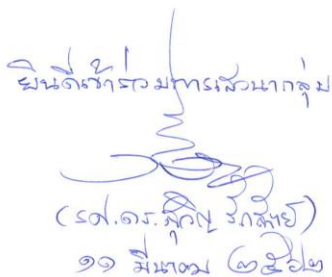 ยินดีเข้าร่วมการเสวนากลุ่ม
(รศ.ดร.สุวิญ รักสัตย์)
๑๑ มีนาคม ๒๕๖๒